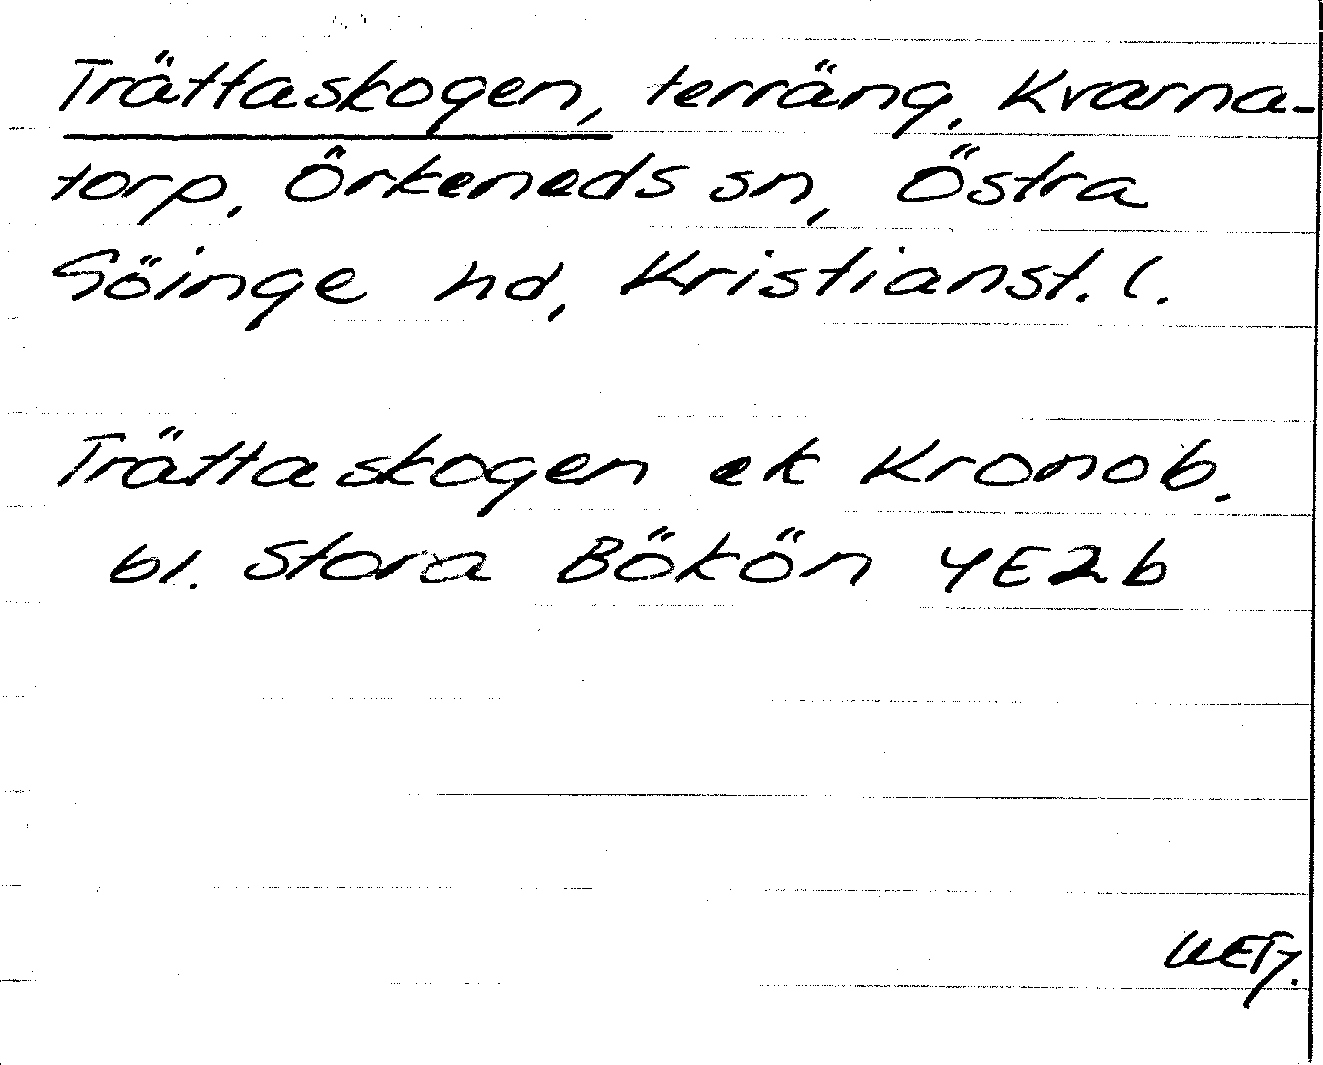 Trättaskogen, terräng, Kvarna-
torp, Örkeneds sn, Östra
Göinge hd, Kristianst. l.
Trättaskogen ek Kronob.
bl. Stora Bökön 4E2b